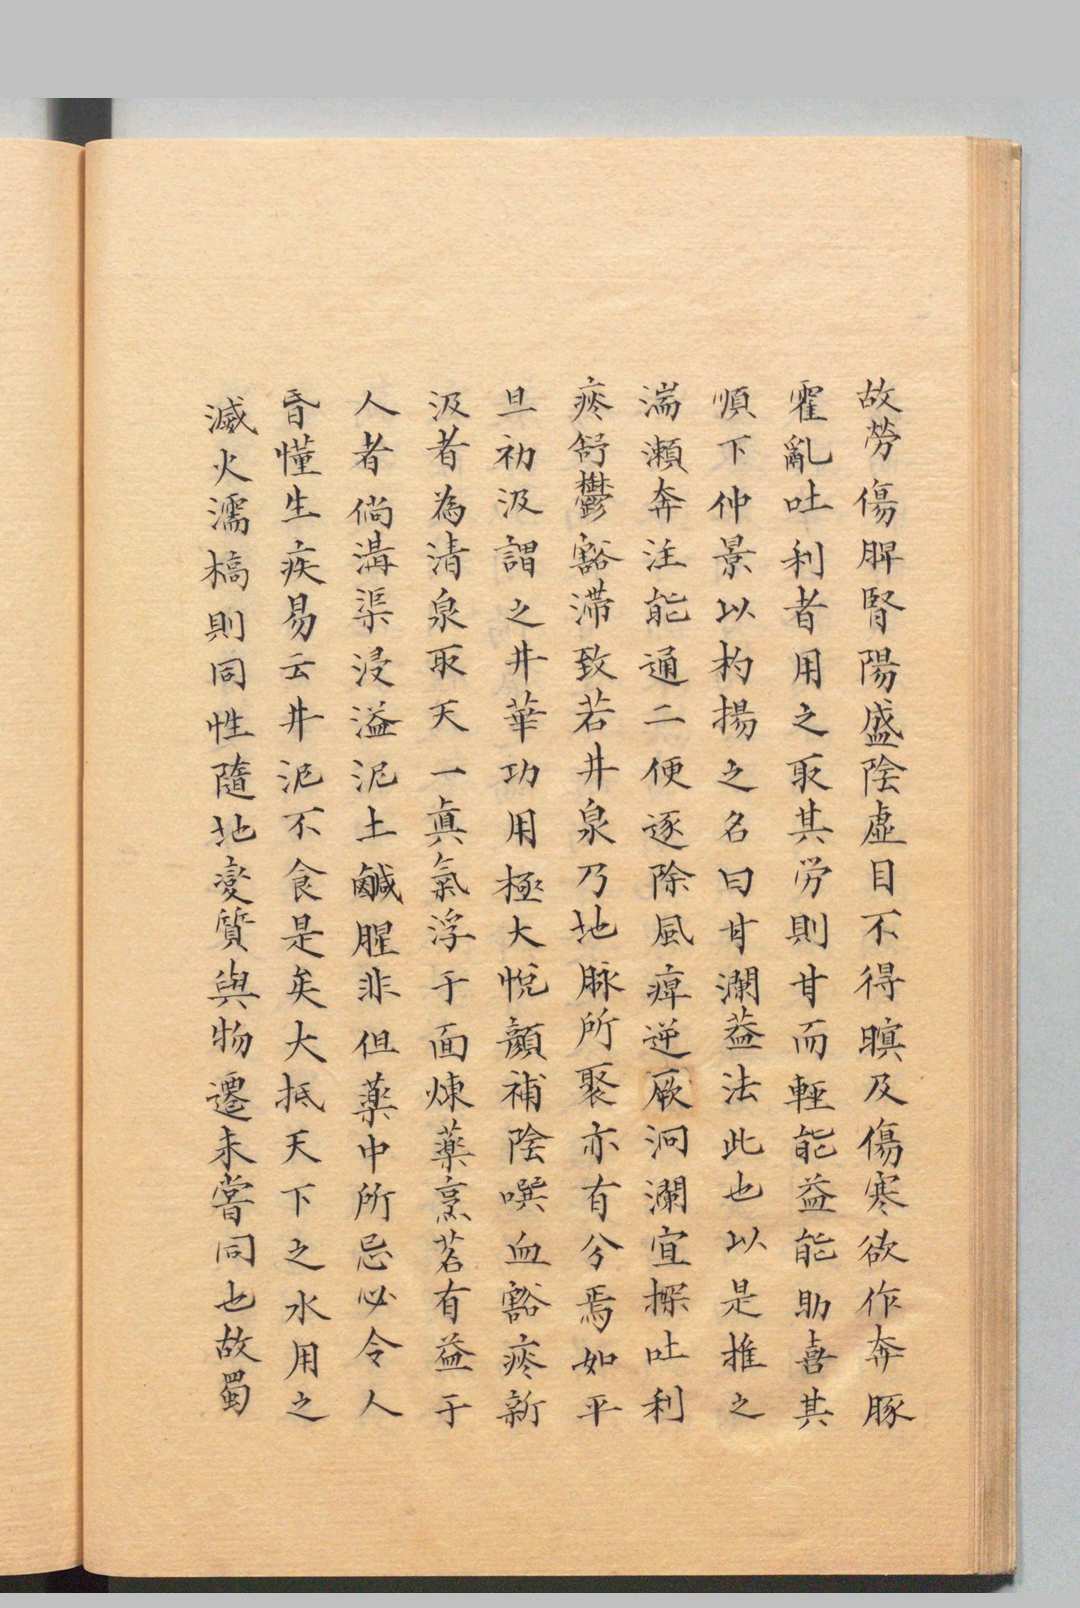 故勞傷脾腎陽盛陰虛目不得瞑及傷寒欲作奔豚
霍亂吐利者用之取其労則甘而輕能益能助喜其
順下仲景以杓揚之名曰甘瀾葢法此也以是推之
湍瀬奔注能通二便逐除風痺逆厥泂瀾宜探吐利
疼舒鬱豁滯致若井泉乃地脉所聚亦有分焉如平
旦初汲謂之井華功用極大悅顏補陰噀血豁疼新
汲者為清泉取天一真氣浮于面煉藥烹茗有益于
人者倘溝渠浸溢泥土鹹腥非但藥中所忌必令人
昏懂生疾易云井泥不食是矣大抵天下之水用之
滅火濡槁則同性隨地變質與物遷未嘗同也故蜀